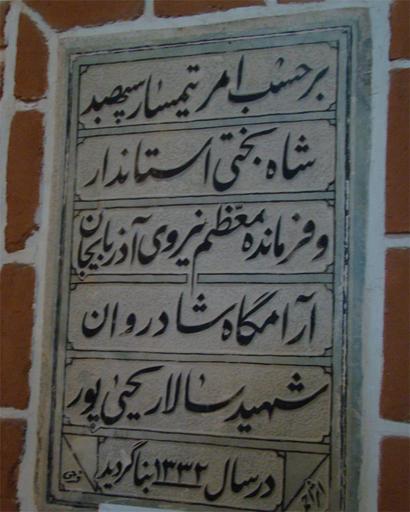 برحسب امر تیمسار سپهبد
شاه بختی استاندار
و فرمانده معظم نیروی آذربایجان
آرامگاه شادروان
شهید سالار یحیی پور
در سال ۱۳۳۲ بنا گردید